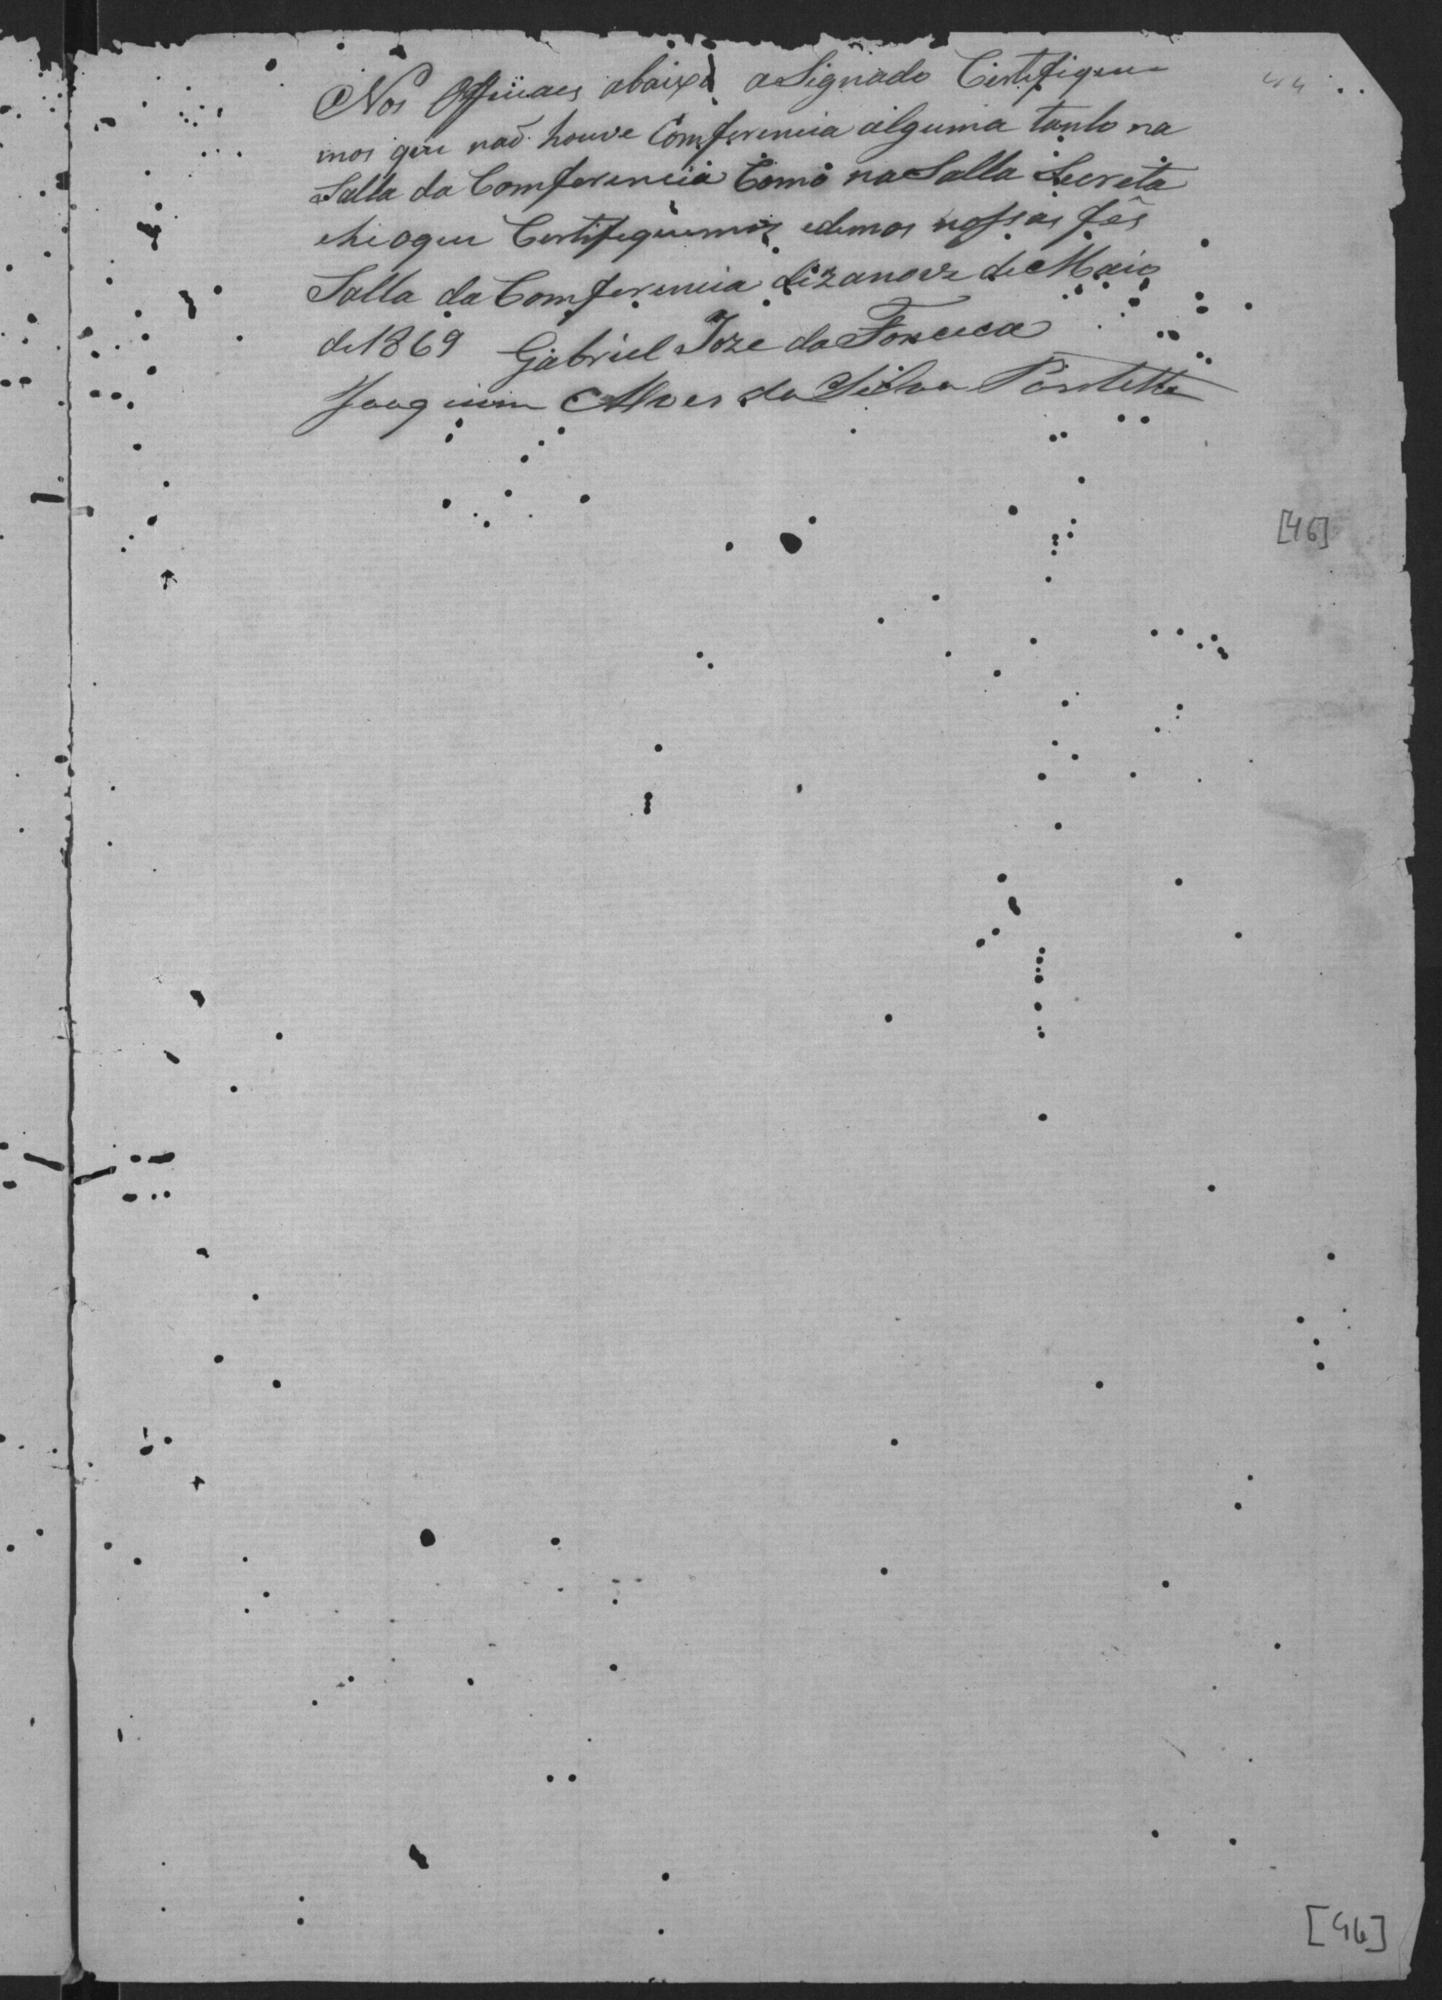 44
Nos Officiaes abaixo aSignado Certefique
mos que naõ houve Comferencia alguma tanto na
Salla da Comferencia Como na Salla Secreta
eheoque Certifiquemos edemos nossas fês
Salla da Comferencia dizanove de Maio
de 1869 Gabriel Joze da Fonceca
Joaquim Alves da Silva
[46]
[46]